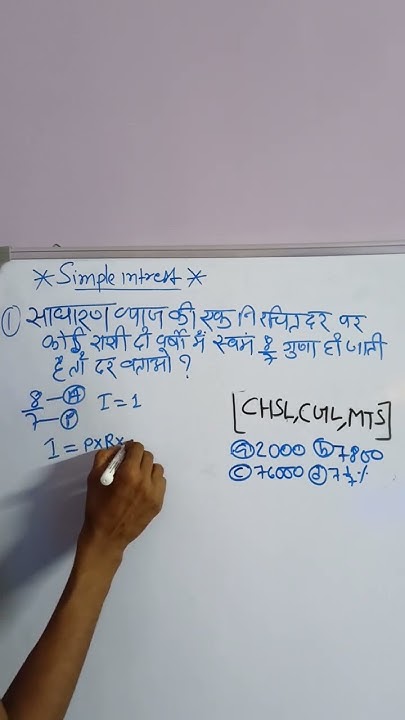 * Simple intrest *
① साधारण ब्याज की एक निश्चित दर पर
कोई राशी दो वर्षो में स्वमं 8/7 गुणा हो जाती
है तो दर बताओ ?
8 — A
7 — P
I = 1
I = P×R×
[CHSL, CGL, MTS]
ⓐ 2000 ⓑ 7800
ⓒ 76000 ⓓ 7 1/7 %